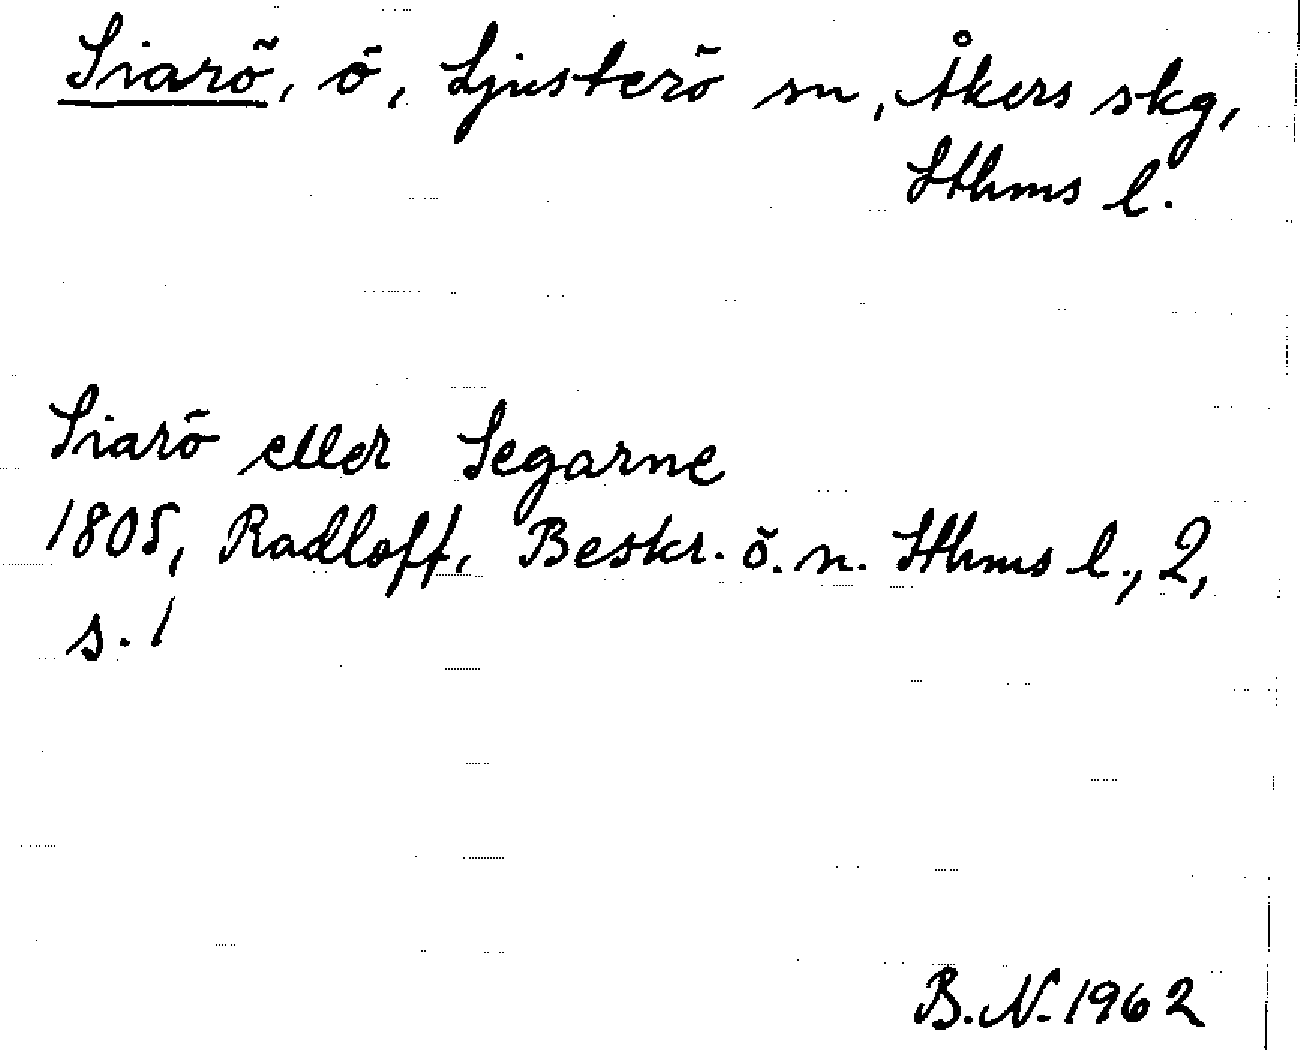 Siarö, ö, Ljusterö sn, Åkers skg,
Sthms l.
Siarö eller Segarne
1805, Radloff, Beskr. ö. n. Sthms l., 2,
s. 1
B.N. 1962